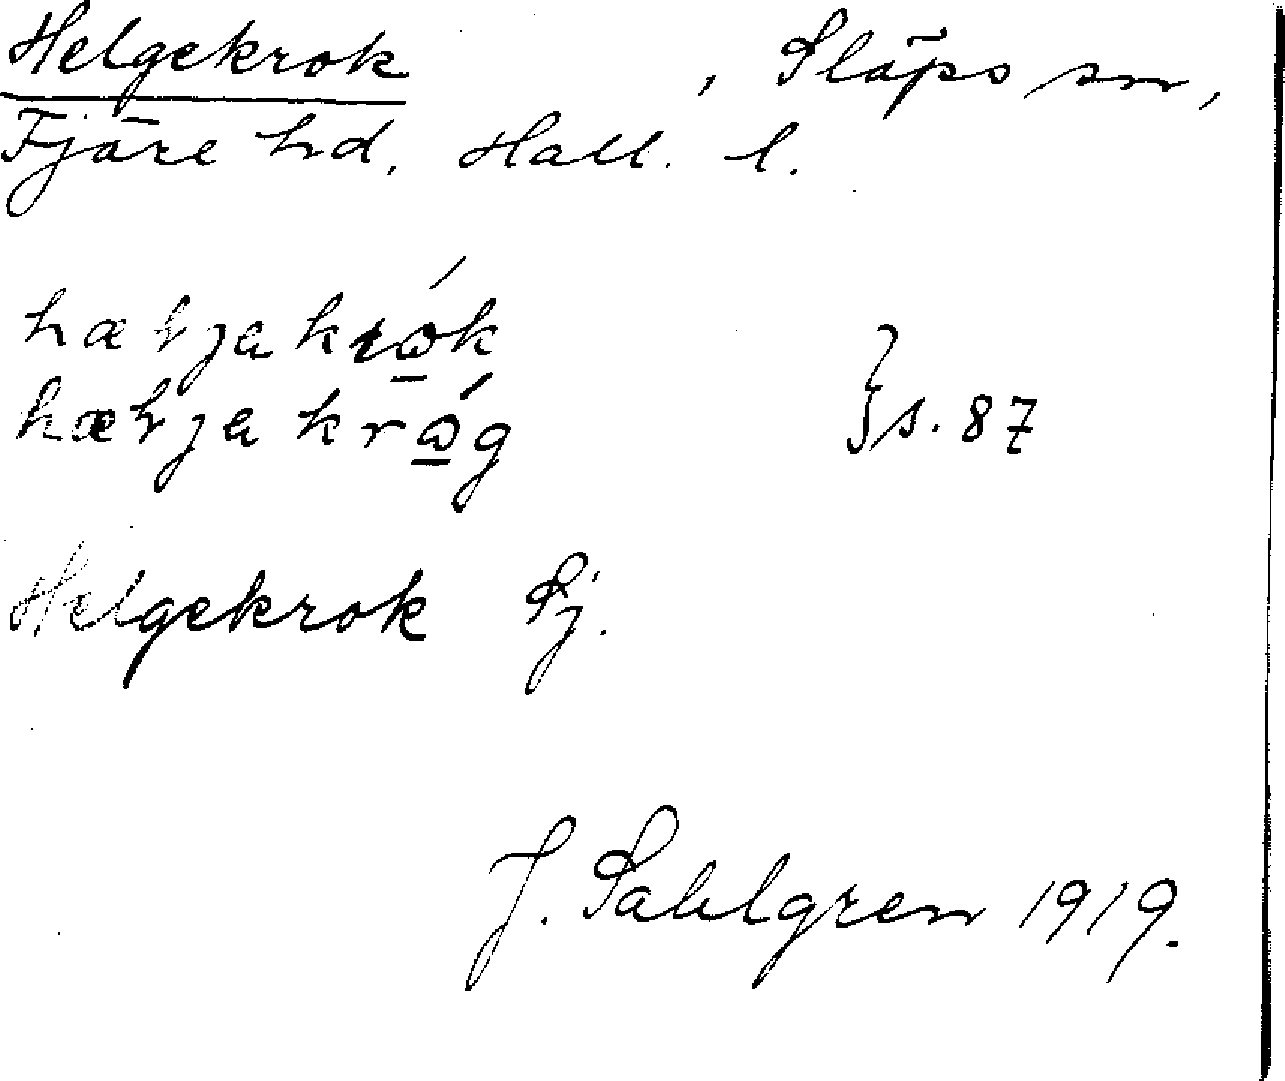 Helgekrok , Släps sn,
Fjäre hd. Hall. l.
hæłjakrɷ́k
hæłjakrɷ́g } s. 87
Helgekrok Sj.
J. Sahlgren 1919.